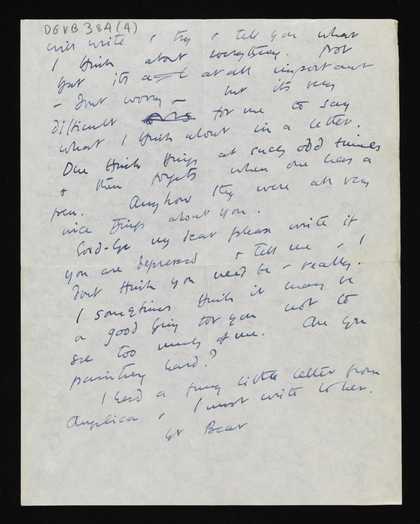 DGVB 38A(A)
will write & try & tell you what
I think about everything. Not
that its at all important
- dont worry - but its very
difficult for me to say
what I think about in a letter.
One thinks things at such odd times
& then forgets when one has a
pen. Anyhow they were all very
nice things about you.
Good-bye my dear please write if
you are depressed & tell me - I
dont think you need be - really.
I sometimes think it may be
a good thing for you not to
see too much of me. Are you
painting hard?
I had a funny little letter from
Angelica & I must write to her.
yr Bear